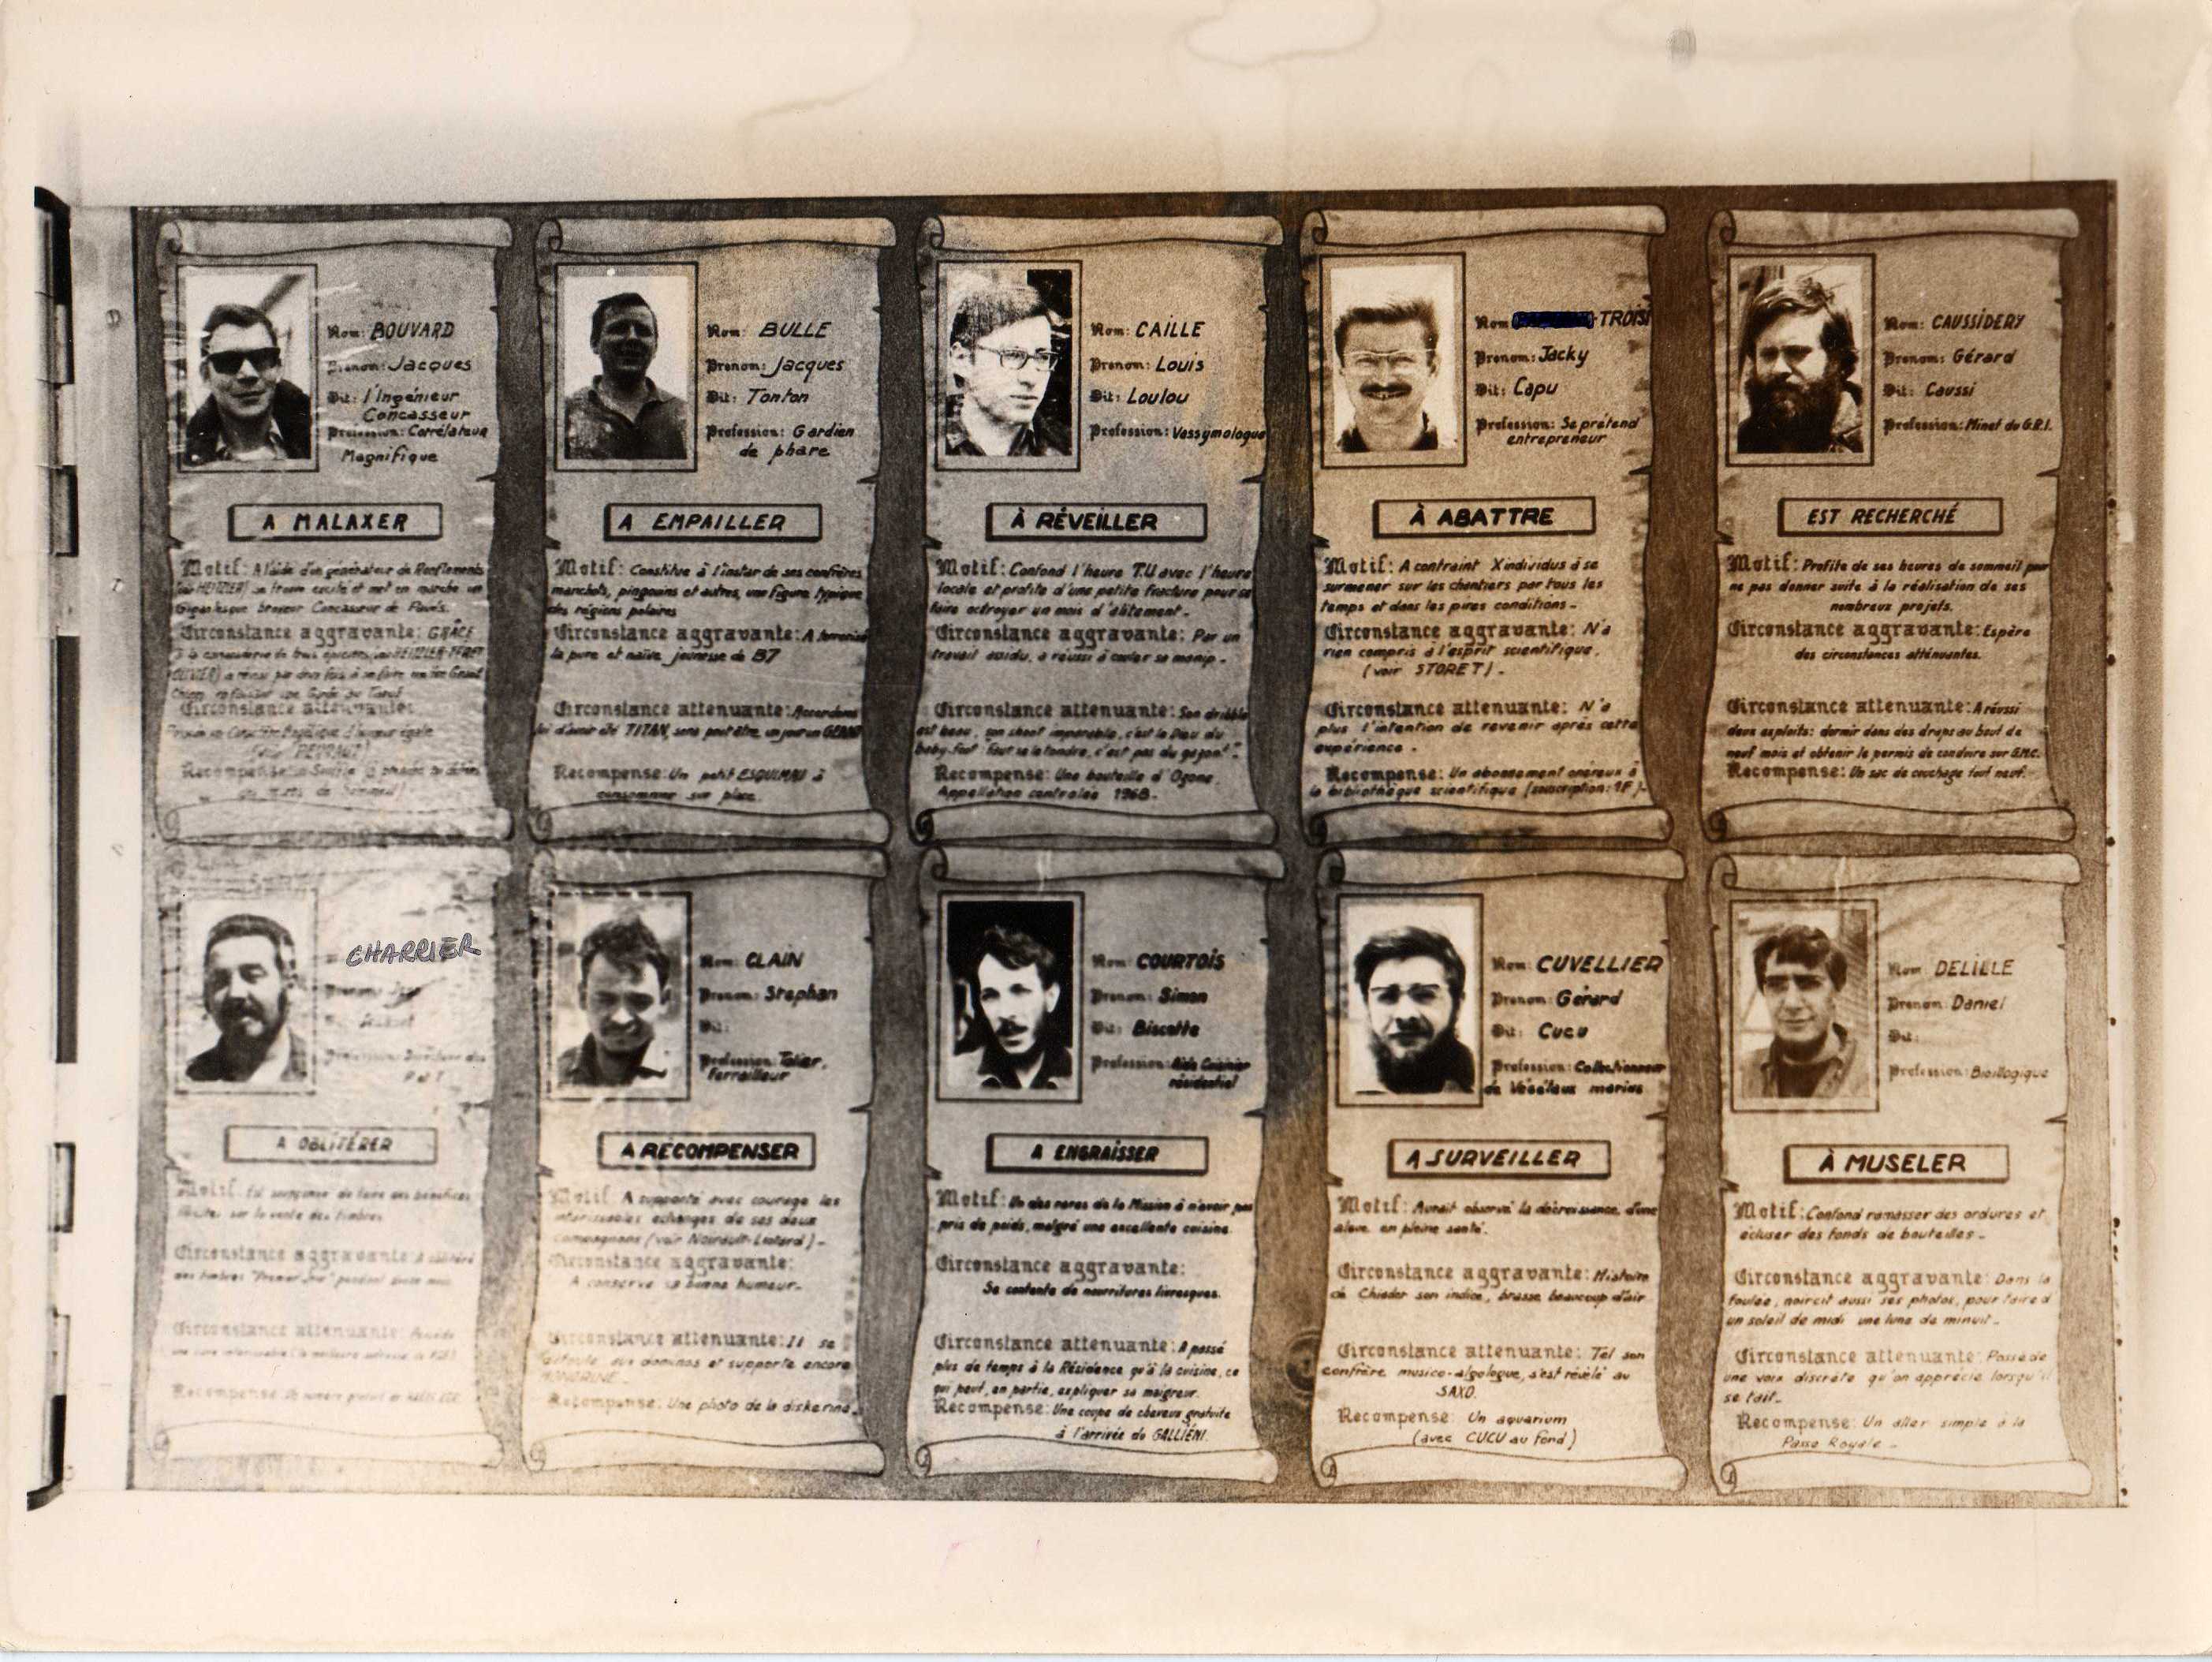 Nom: BOUVARD
Prenom: Jacques
Dit: l'Ingénieur
Concasseur
Profession: Corrélateur
Magnifique
A MALAXER
Motif: A l'aide d'un générateur de Ronflements
(voir HEIZLER) se trouve excité et met en marche un
Gigantesque broyeur Concasseur de Pavés.
Circonstance aggravante: GRÂCE
Circonstance attenuante:
Recompense:
Nom: BULLE
Prenom: Jacques
Dit: Tonton
Profession: Gardien
de phare
A EMPAILLER
Motif: Constitue à l'instar de ses confrères
manchots, pingouins et autres, une figure typique
des régions polaires
Circonstance aggravante: A terrorisé
la pure et naïve jeunesse de B7
Circonstance attenuante: Accordons
lui d'avoir été TITAN, sans peut être, un jour un GEANT
Recompense: Un petit ESQUIMAU à
consommer sur place.
Nom: CAILLE
Prenom: Louis
Dit: Loulou
Profession: Vassymologue
À RÉVEILLER
Motif: Confond l'heure T.U avec l'heure
locale et profite d'une petite fracture pour se
faire octroyer un mois d'alitement.
Circonstance aggravante: Par un
travail assidu, a réussi à couler sa manip.
Circonstance attenuante: Son dribble
est beau, son shoot imparable, c'est le Dieu du
baby-foot: faut se le tondre, c'est pas du gazon!
Recompense: Une bouteille d'Ozone.
Appellation controlée 1968.
Nom TROISI
Prenom: Jacky
Dit: Capu
Profession: Se prétend
entrepreneur
À ABATTRE
Motif: A contraint X individus à se
surmener sur les chantiers par tous les
temps et dans les pires conditions.
Circonstance aggravante: N'a
rien compris à l'esprit scientifique.
(voir STORET).
Circonstance attenuante: N'a
plus l'intention de revenir après cette
expérience.
Recompense: Un abonnement onéreux à
la bibliothèque scientifique (souscription: 1F).
Nom: CAUSSIDERY
Prenom: Gérard
Dit: Caussi
Profession: Minet du G.R.I.
EST RECHERCHÉ
Motif: Profite de ses heures de sommeil pour
ne pas donner suite à la réalisation de ses
nombreux projets.
Circonstance aggravante: Espère
des circonstances atténuantes.
Circonstance attenuante: A réussi
deux exploits: dormir dans des draps au bout de
neuf mois et obtenir le permis de conduire sur G.M.C.
Recompense: Un sac de couchage tout neuf.
CHARRIER
A OBLITÉRER
Motif: Est soupçonné de faire des bénéfices
illicites sur la vente des timbres
Circonstance aggravante: A oblitéré
des timbres "Premier Jour" pendant douze mois
Circonstance attenuante:
Recompense
Nom: CLAIN
Prenom: Stephan
Dit:
Profession: Tolier,
ferrailleur
A RECOMPENSER
Motif: A supporté avec courage les
intarissables échanges de ses deux
compagnons (voir Noirault-Liotard).
Circonstance aggravante:
A conservé sa bonne humeur.
Circonstance attenuante: Il se
aux dominos et supporte encore
Recompense: Une photo de la diskerine.
Nom: COURTOIS
Prenom: Simon
Dit: Biscotte
Profession: Aide Cuisinier
résidentiel
A ENGRAISSER
Motif: Un des rares de la Mission à n'avoir pas
pris de poids, malgré une excellente cuisine.
Circonstance aggravante:
Se contente de nourritures livresques.
Circonstance attenuante: A passé
plus de temps à la Résidence qu'à la cuisine, ce
qui peut, en partie, expliquer sa maigreur.
Recompense: Une coupe de cheveux gratuite
à l'arrivée du GALLIÉNI.
Nom: CUVELLIER
Prenom: Gérard
Dit: Cucu
Profession: Collectionneur
de Végétaux marins
A SURVEILLER
Motif: Aurait observé la décroissance d'une
algue en pleine santé.
Circonstance aggravante: Histoire
de Chiader son indice, brasse beaucoup d'air
Circonstance attenuante: Tel son
confrère musico-algologue, s'est révélé au
SAXO.
Recompense: Un aquarium
(avec CUCU au fond)
Nom DELILLE
Prenom: Daniel
Dit:
Profession: Bioillogique
À MUSELER
Motif: Confond ramasser des ordures et
écluser des fonds de bouteilles.
Circonstance aggravante: Dans la
foulée, noircit aussi ses photos, pour faire d'
un soleil de midi une lune de minuit.
Circonstance attenuante: Possède
une voix discrète qu'on apprécie lorsqu'il
se tait.
Recompense: Un aller simple à la
Passe Royale.